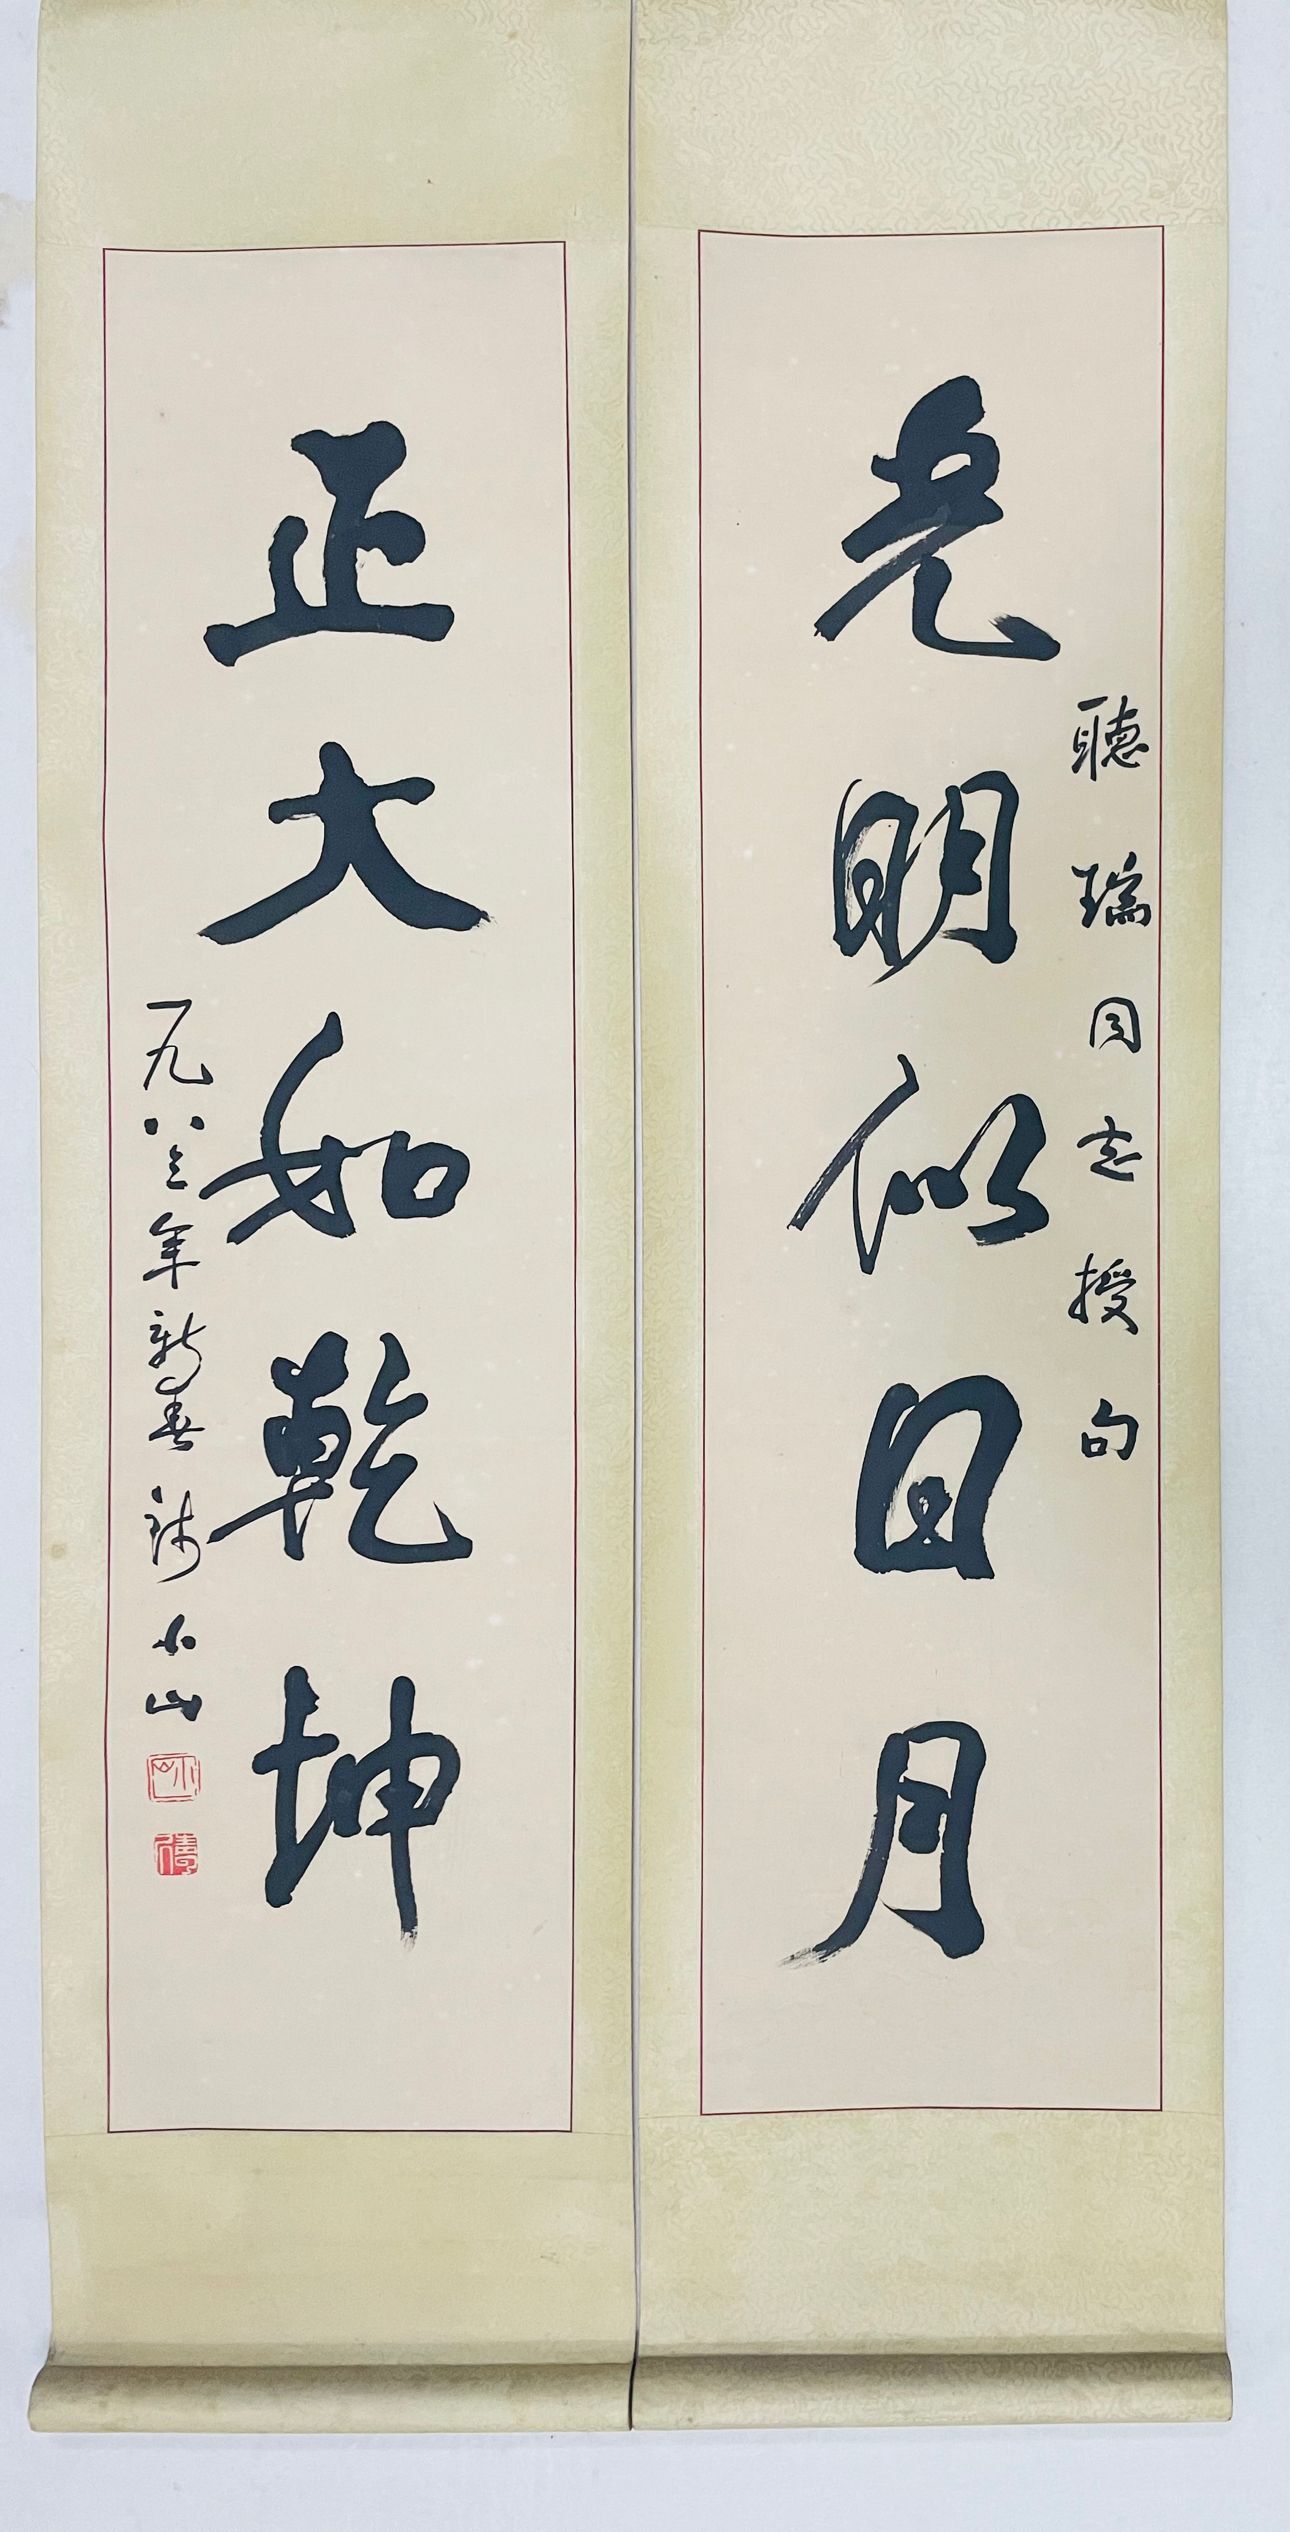 聽瑞同志授句
光明似日月
正大如乾坤
一九八三年新春 小山